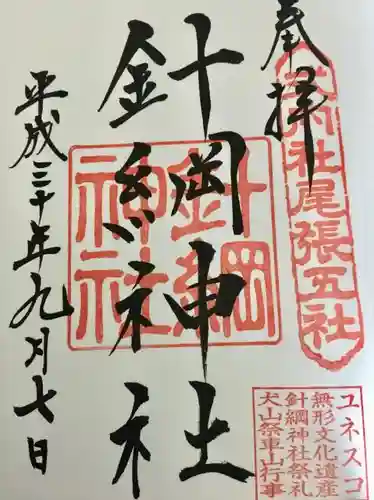 奉拝
式内社尾張五社
針綱神社
針綱
神社
平成三十年九月七日
ユネスコ
無形文化遺産
針綱神社祭礼
犬山祭車山行事